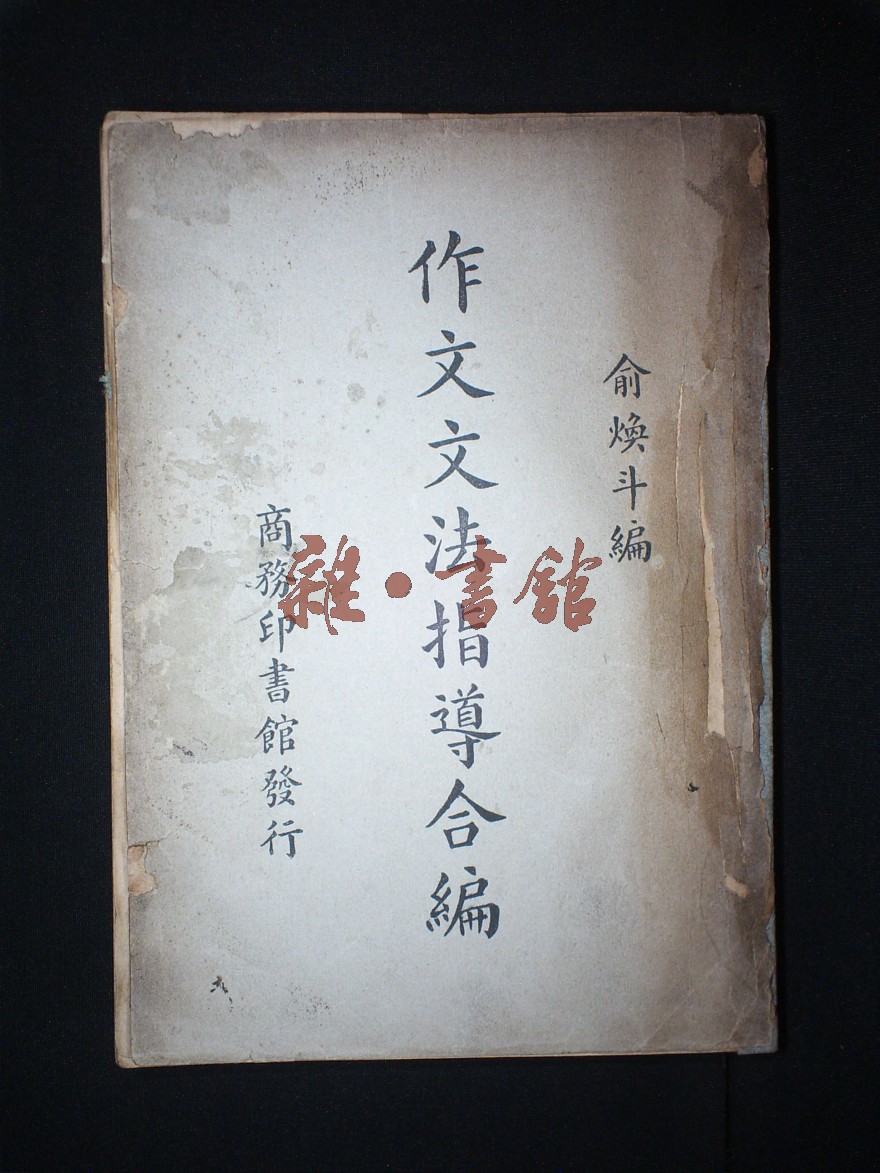 俞煥斗編
作文文法指導合編
商務印書館發行
雜·書館